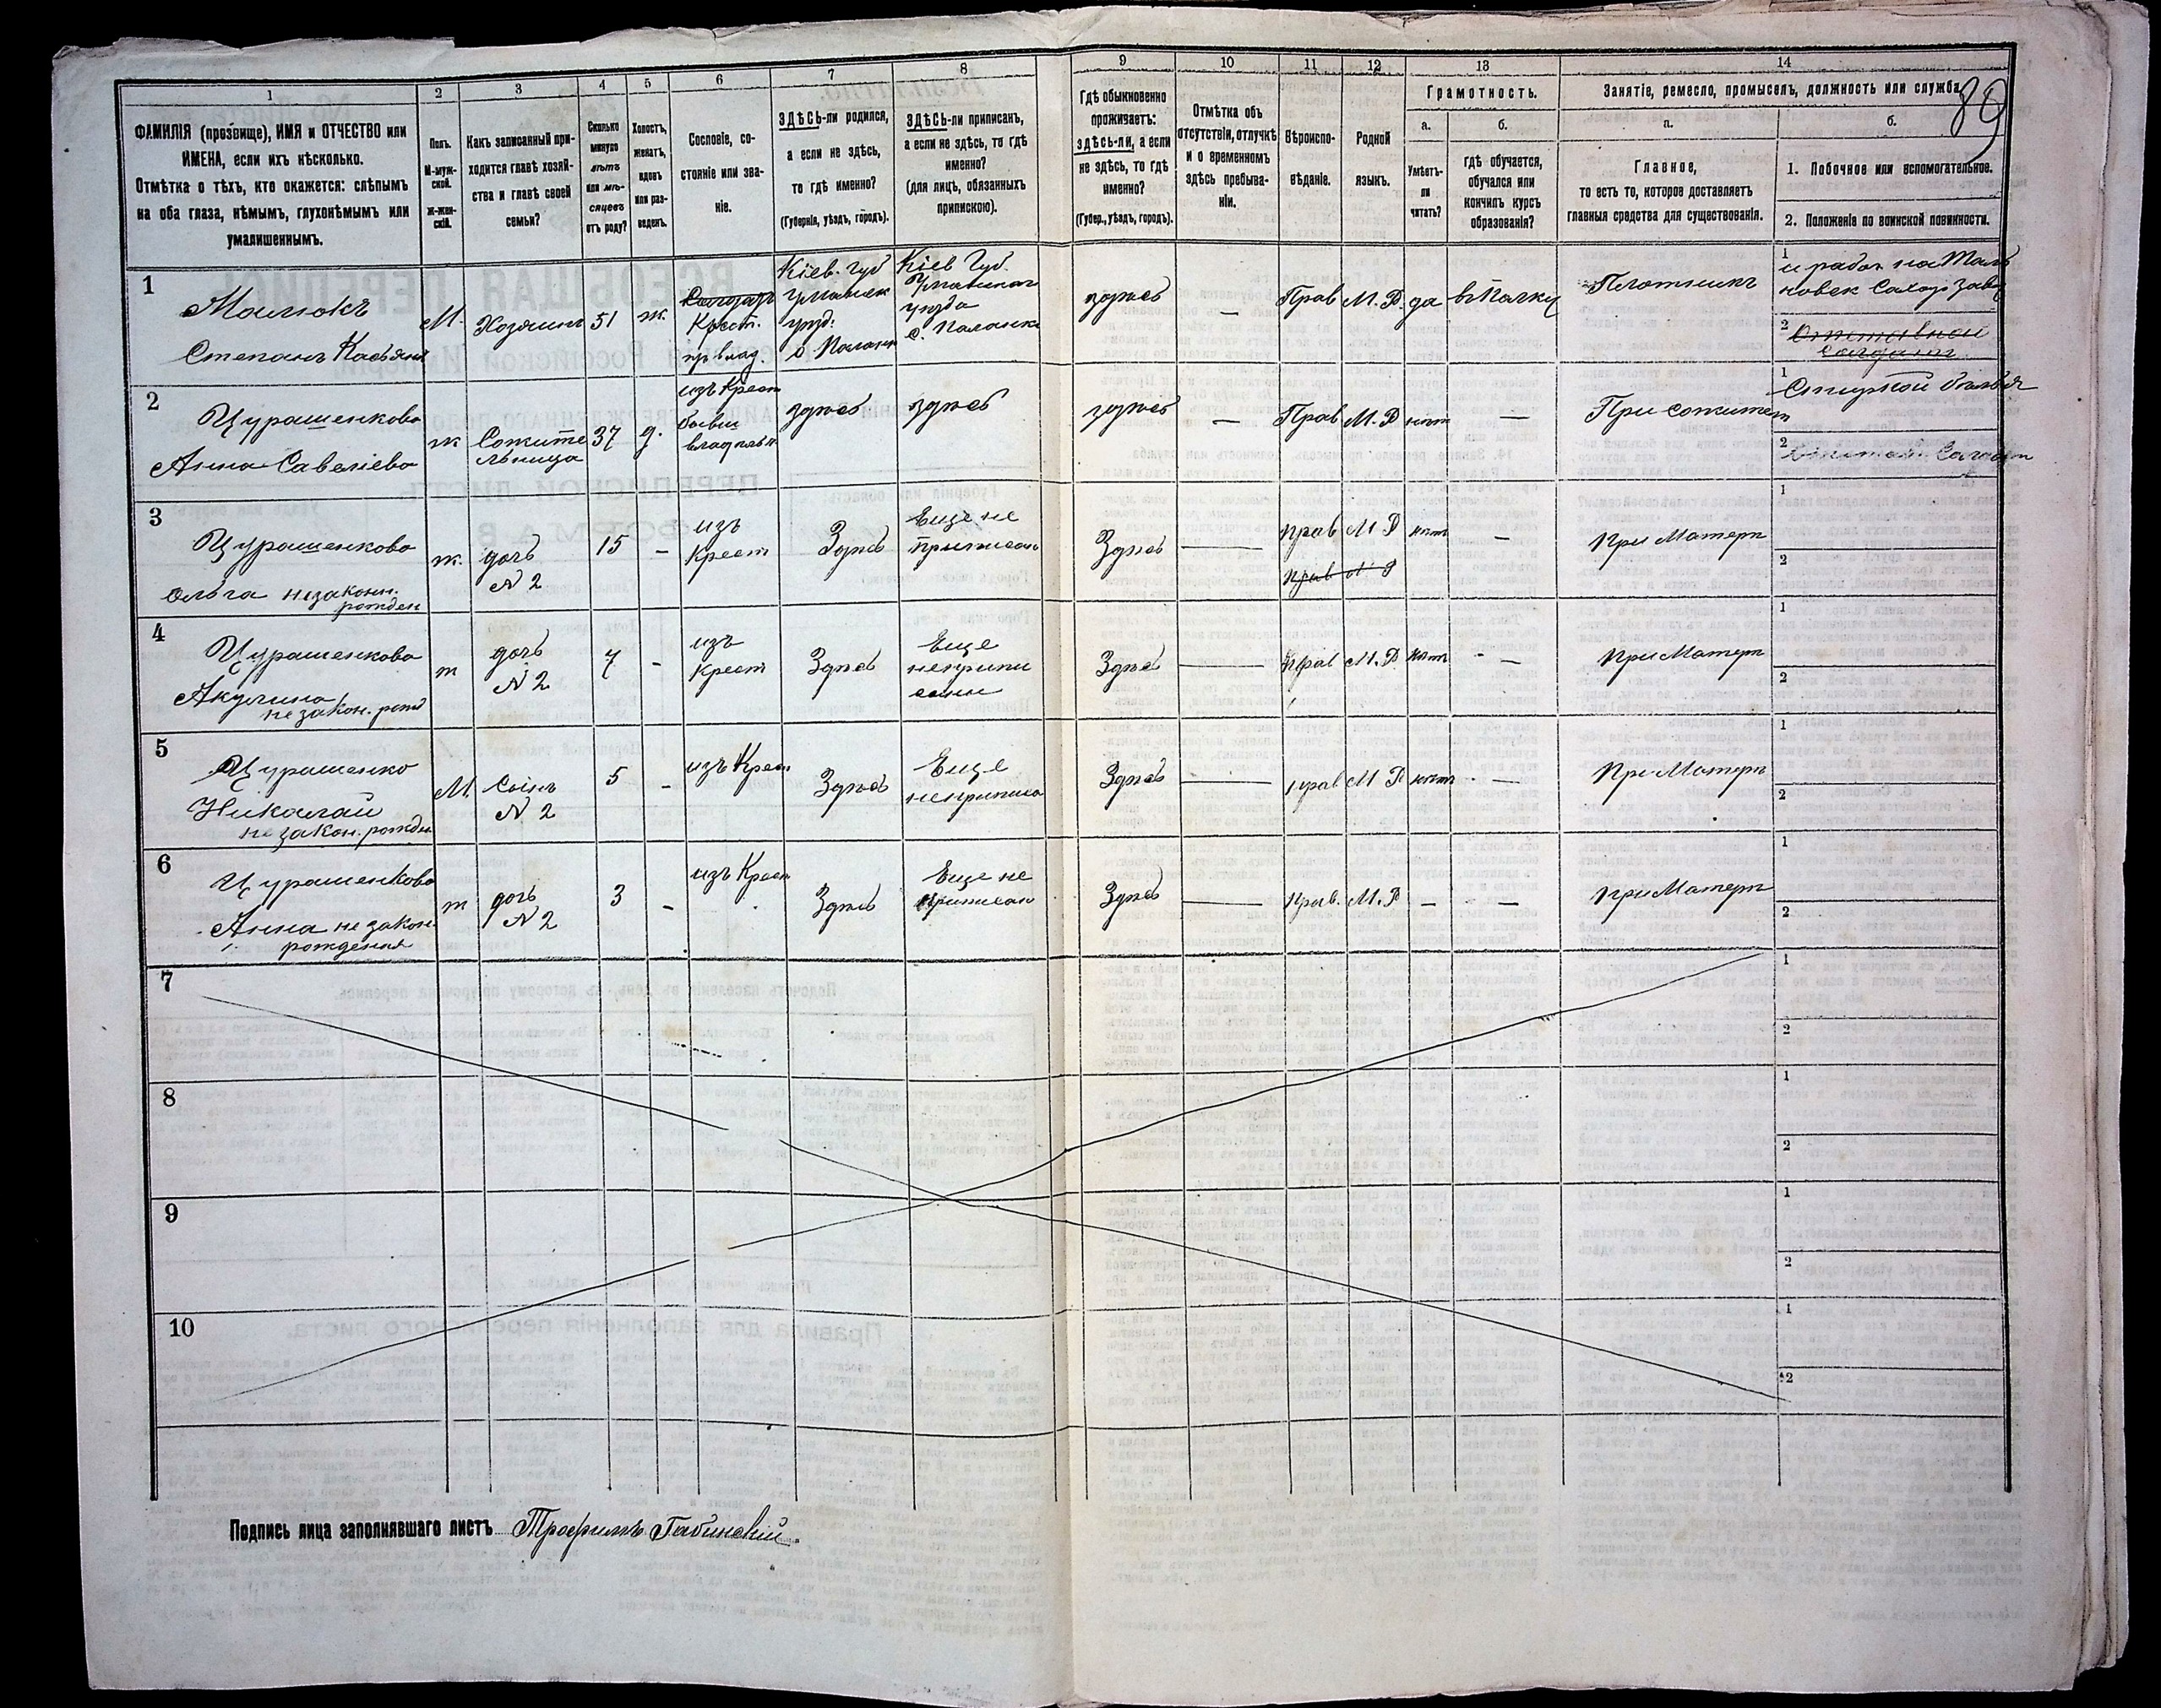 1
2
3
4
5
6
7
8
9
10
11
12
13
14
ФАМИЛІЯ (прозвище), ИМЯ и ОТЧЕСТВО или
ИМЕНА, если ихъ нѣсколько.
Отмѣтка о тѣхъ, кто окажется: слѣпымъ
на оба глаза, нѣмымъ, глухонѣмымъ или
умалишеннымъ.
Полъ.
М-муж-
ской.
Ж-жен-
скій.
Какъ записанный при-
ходится главѣ хозяй-
ства и главѣ своей
семьи?
Сколько
минуло
лѣтъ
или мѣ-
сяцевъ
отъ роду?
Холостъ,
женатъ,
вдовъ
или раз-
веденъ.
Сословіе, со-
стояніе или зва-
ніе.
ЗДѢСЬ-ли родился,
а если не здѣсь,
то гдѣ именно?
(Губернія, уѣздъ, городъ).
ЗДѢСЬ-ли приписанъ,
а если не здѣсь, то гдѣ
именно?
(для лицъ, обязанныхъ
припискою).
Гдѣ обыкновенно
проживаетъ:
здѣсь-ли, а если
не здѣсь, то гдѣ
именно?
(Губер., уѣздъ, городъ).
Отмѣтка объ
отсутствіи, отлучкѣ
и о временномъ
здѣсь пребыва-
ніи.
Вѣроиспо-
вѣданіе.
Родной
языкъ.
Грамотность.
а.
Умѣетъ-
ли
читать?
б.
гдѣ обучается,
обучался или
кончилъ курсъ
образованія?
Занятіе, ремесло, промыселъ, должность или служба.
89
а.
Главное,
то есть то, которое доставляетъ
главныя средства для существованія.
б.
1. Побочное или вспомогательное.
2. Положеніе по воинской повинности.
1
Малюкъ
Степанъ Касьян
М.
Хозяинъ
51
ж.
Солдатъ
Крест.
пр влад.
Кіев. Губ
Уманск
уѣзд.
с. Паланк
Кіев Губ.
Уманскаго
уѣзда
с. Паланк
здѣсь
—
Прав
М. Р.
да
въ Полку
Плотникъ
1
и работ на Таль
новск Сахар Зав
2
Отставной
солдатъ
2
Цурашенкова
Анна Савеліева
ж
Сожите
льница
37
д.
изъ Крест
бывш
влад
здѣсь
здѣсь
здѣсь
—
Прав
М. Р
нѣт
—
При сожител
1
2
3
Цурашенкова
Ольга незаконн.
рожден
ж.
дочь
N 2
15
-
изъ
Крест
Здѣсь
Еще не
приписан
Здѣсь
—
прав
М Р
прав М Р
нѣт
—
при Матери
1
2
4
Цурашенкова
Акулина
не закон. рожд
ж
дочь
N 2
7
-
изъ
Крест
Здѣсь
Еще
неприпи
санн
Здѣсь
—
прав
М. Р
нѣт
—
при Матери
1
2
5
Цурашенко
Николай
не закон. рожден
М.
Сынъ
N 2
5
-
изъ Крест
Здѣсь
Еще
неприписа
Здѣсь
—
прав
М Р
нѣт
—
При Матери
1
2
6
Цурашенкова
Анна не закон.
рожденная
ж
дочь
N 2
3
-
изъ Крест
Здѣсь
Еще не
приписан
Здѣсь
—
прав.
М. Р
—
—
при Матери
1
2
7
1
2
8
1
2
9
1
2
10
1
2
Подпись лица заполнявшаго листъ Трофимъ Габинскій